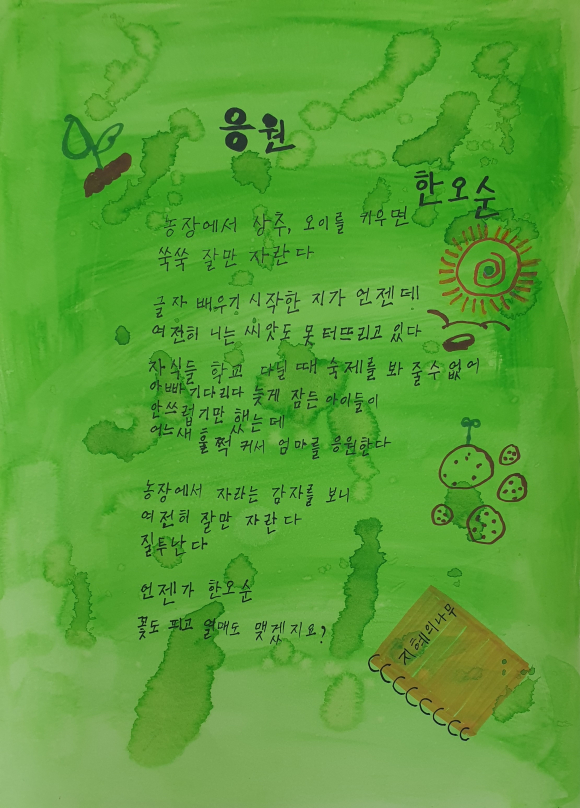 응원
한오순
농장에서 상추, 오이를 키우면
쑥쑥 잘만 자란다
글자 배우기 시작한 지가 언젠데
여전히 나는 씨앗도 못 터뜨리고 있다
자식들 학교 다닐 때 숙제를 봐 줄 수 없어
아빠 기다리다 늦게 잠든 아이들이
안쓰럽기만 했는데
어느새 훌쩍 커서 엄마를 응원한다
농장에서 자라는 감자를 보니
여전히 잘만 자란다
질투난다
언젠가 한오순
꽃도 피고 열매도 맺겠지요?
지혜의나무